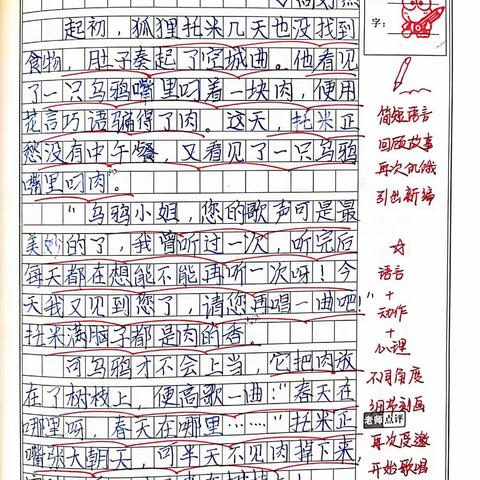 起初，狐狸托米几天也没找到
食物，肚子奏起了空城曲。他看见
了一只乌鸦嘴里叼着一块肉，便用
花言巧语骗得了肉。这天，托米正
愁没有中午餐，又看见了一只乌鸦
嘴里叼肉。
“乌鸦小姐，您的歌声可是最
美妙的了，我曾听过一次，听完后
每天都在想能不能再听一次呀！今
天我又见到您了，请您再唱一曲吧！”
托米满脑子都是肉的香。
可乌鸦才不会上当，它把肉放
在了树枝上，便高歌一曲：“春天在
哪里呀，春天在哪里……”托米正
嘴张大朝天，可半天不见肉掉下来，
字：
简短语言
回顾故事
再次饥饿
引出新编
语言
+
动作
+
心理
不同角度
细节刻画
老师点评
再次邀
开始歌唱